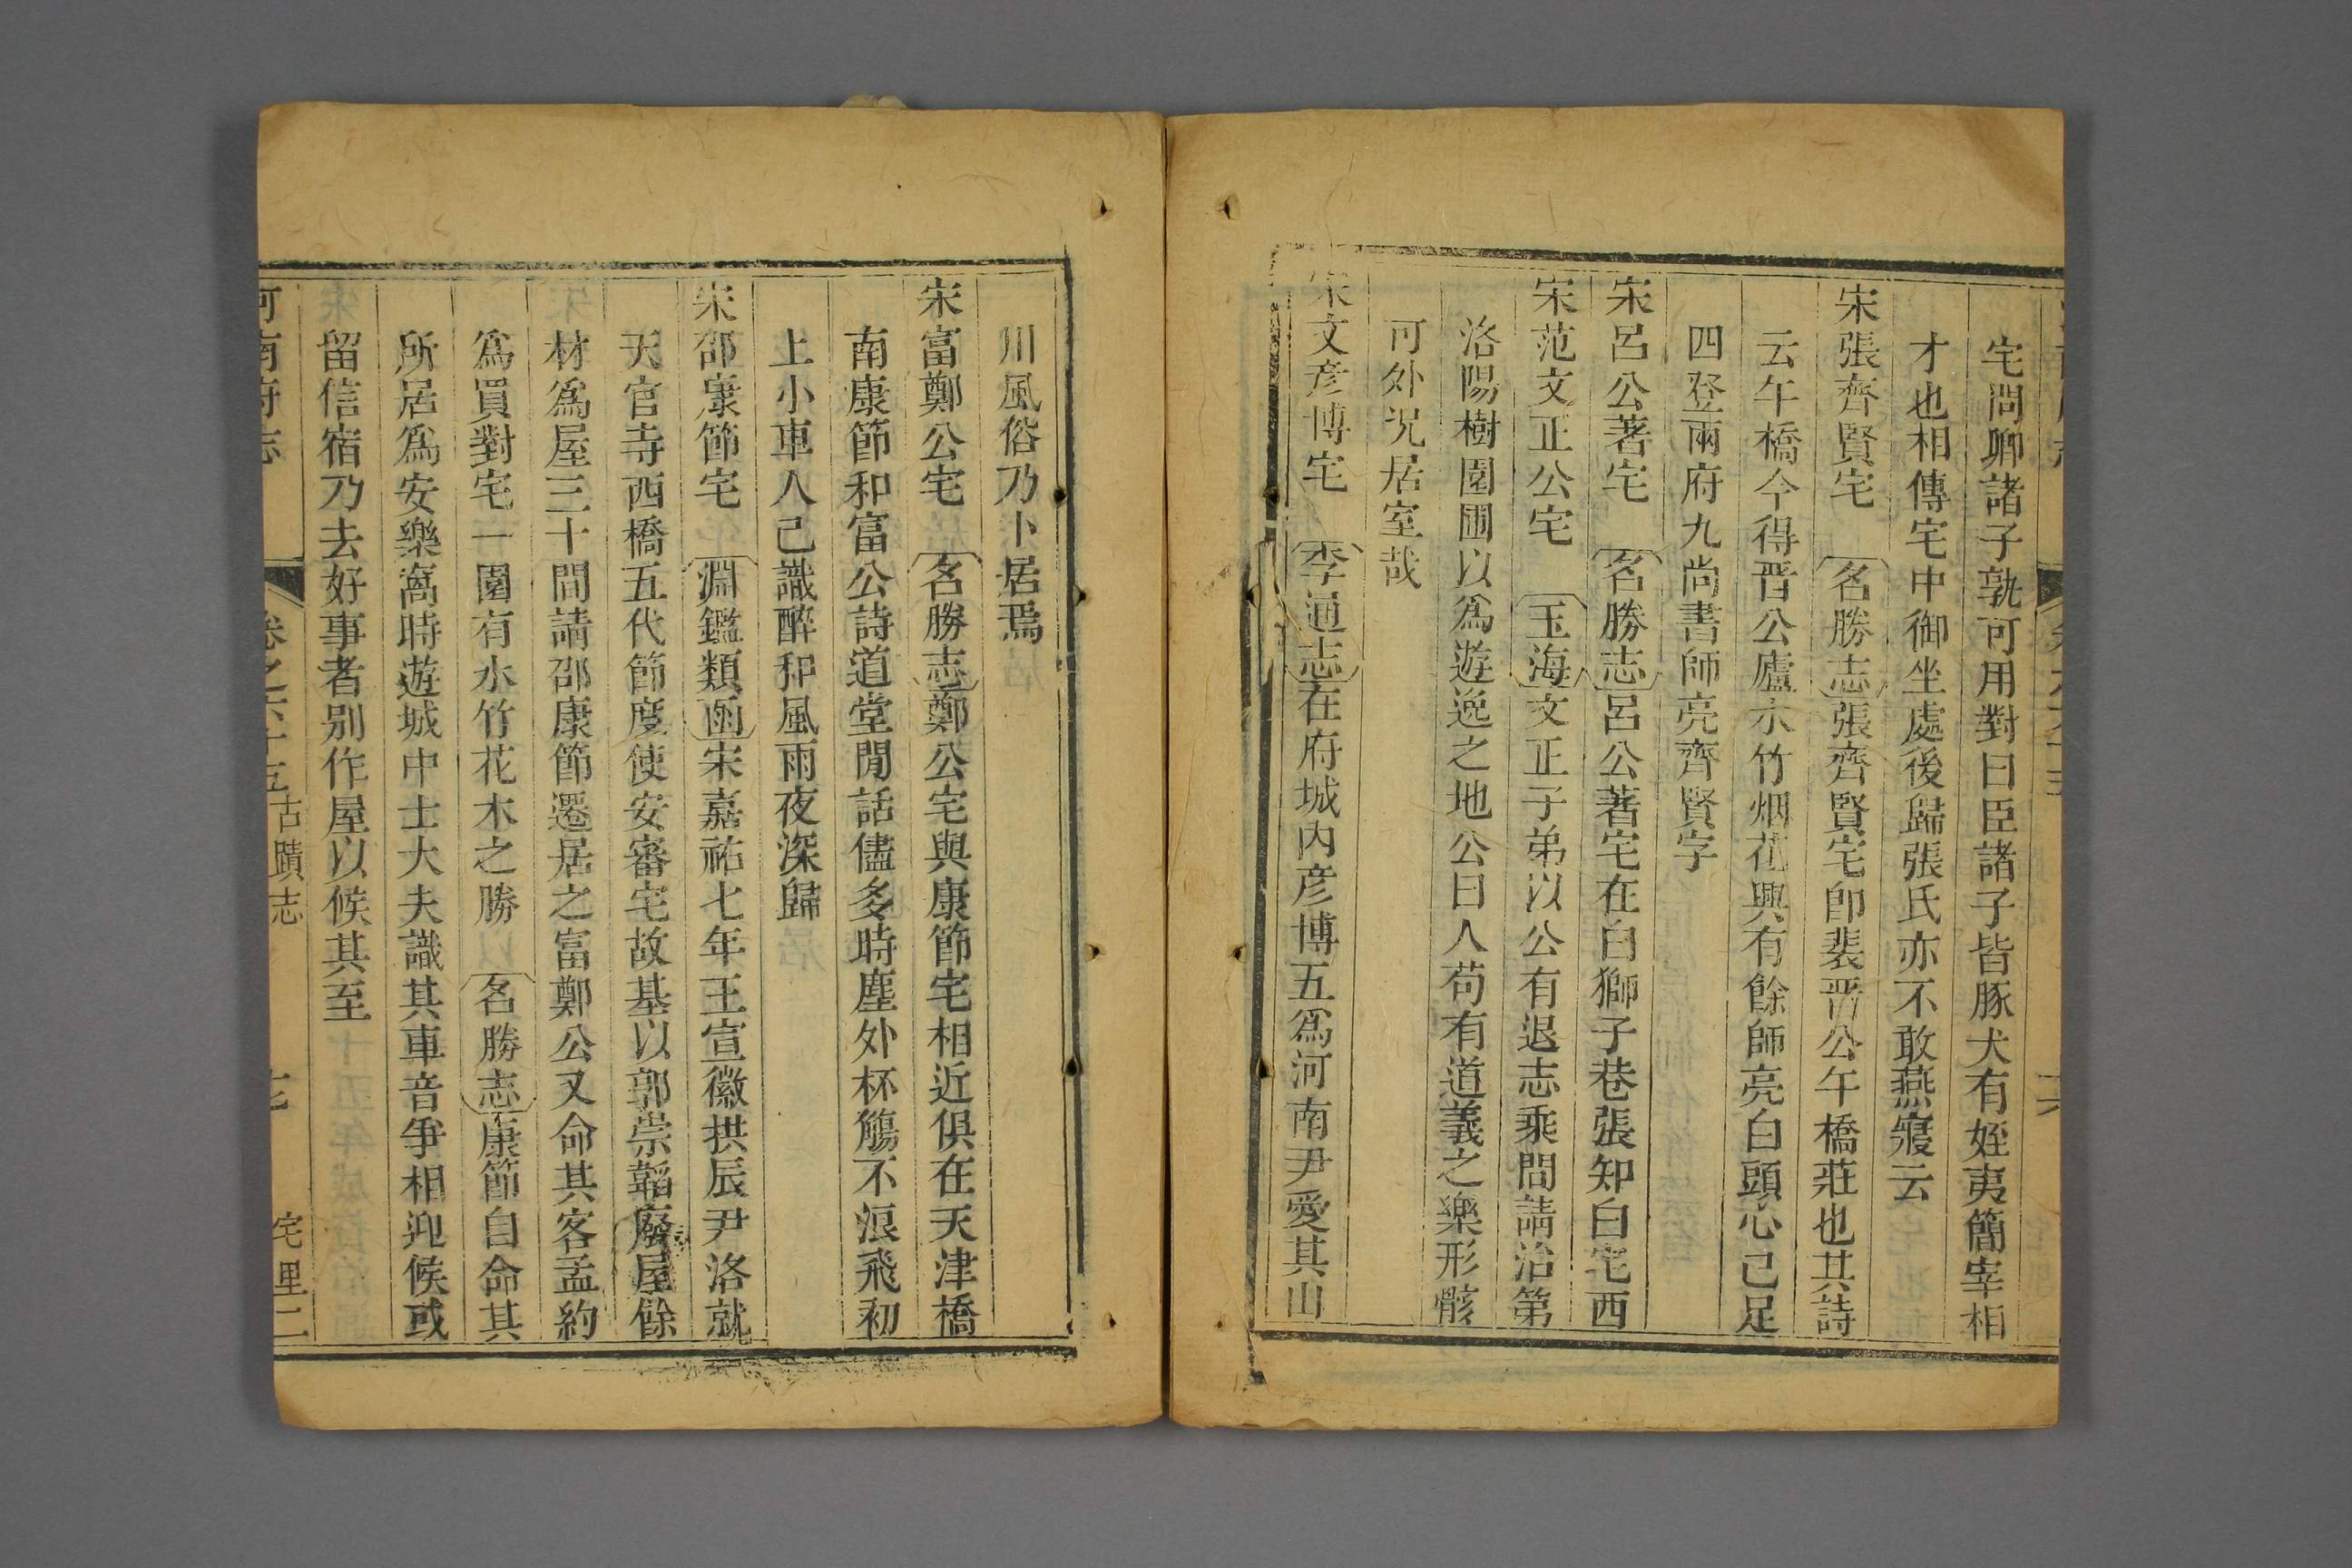 宅問卿諸子孰可用對曰臣諸子皆豚犬有姪夷簡宰相
才也相傳宅中御坐處後歸張氏亦不敢燕寢云
宋張齊賢宅 名勝志張齊賢宅卽裴晋公午橋莊也其詩
云午橋今得晋公廬水竹烟花興有餘師亮白頭心已足
四登兩府九尚書師亮齊賢字
宋呂公著宅 名勝志呂公著宅在白獅子巷張知白宅西
宋范文正公宅 玉海文正子弟以公有退志乘間請治第
洛陽樹園圃以爲遊逸之地公曰人苟有道義之樂形骸
可外况居室哉
宋文彦博宅 李通志在府城内彦博五爲河南尹愛其山
川風俗乃卜居焉
宋富鄭公宅 名勝志鄭公宅與康節宅相近俱在天津橋
南康節和富公詩道堂閒話儘多時塵外杯觴不浪飛初
上小車人己識醉和風雨夜深歸
宋邵康節宅 淵鑑類函宋嘉祐七年王宣徽拱辰尹洛就
天官寺西橋五代節度使安審宅故基以郭崇韜廢屋餘
材爲屋三十間請邵康節遷居之富鄭公又命其客孟約
爲買對宅一園有水竹花木之勝 名勝志康節自命其
所居爲安樂窩時遊城中士大夫識其車音爭相迎候或
留信宿乃去好事者別作屋以候其至
河南府志 卷之六十五古蹟志 七 宅里二